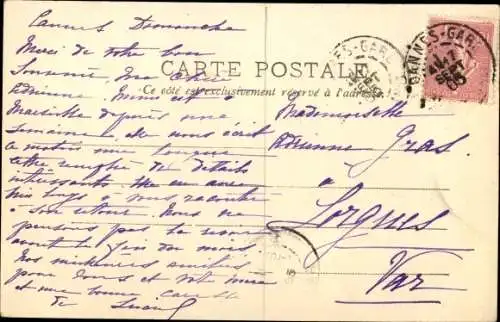 Cannes Dimanche
Merci de votre bon
souvenir ma chère
Adrienne. Emma est à
Marseille depuis une
semaine elle nous écrit
ce matin une longue
lettre remplie de détails
intéressants. Elle en aura
à vous raconter
à son retour. Nous ne
pensons pas la revoir
avant la fin du mois.
Nos meilleures amitiés
pour vous et votre mère
et une bonne caresse
de
CARTE POSTALE
Ce côté est exclusivement réservé à l'adresse
Mademoiselle
Adrienne Gras
à
Lorgues
Var
CANNES-GARE